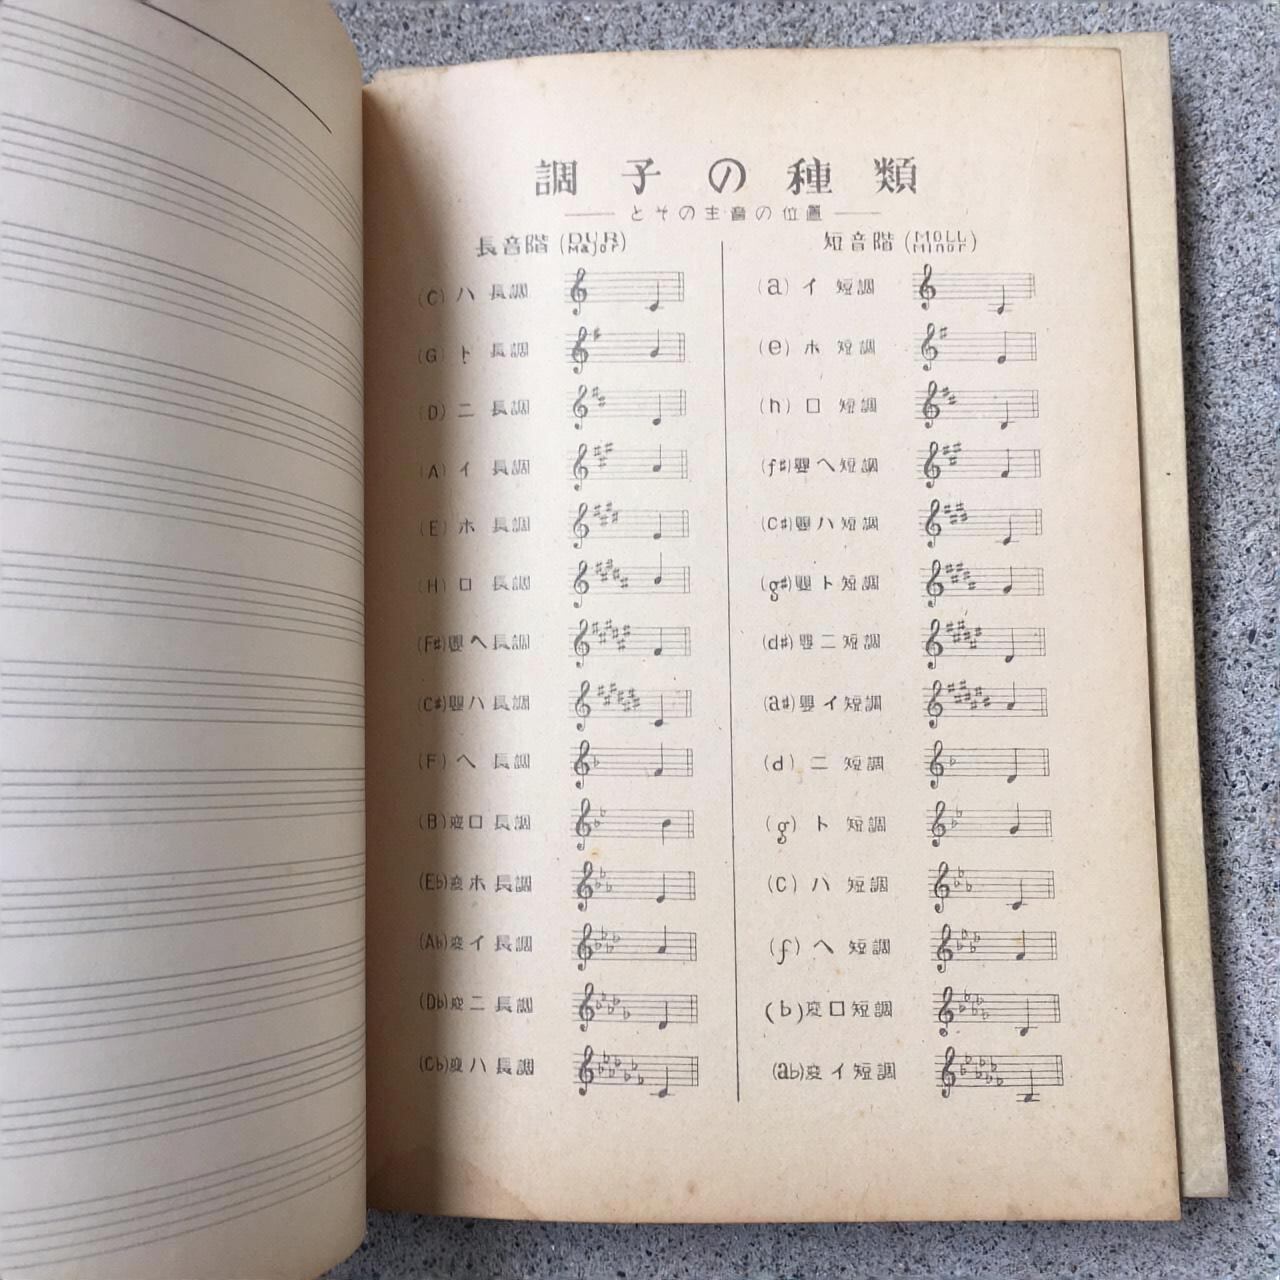 調子の種類
とその主音の位置
長音階 (DUR Major)
(C) ハ 長調
(G) ト 長調
(D) ニ 長調
(A) イ 長調
(E) ホ 長調
(H) ロ 長調
(F♯) 嬰ヘ長調
(C♯) 嬰ハ長調
(F) ヘ 長調
(B) 変ロ長調
(E♭) 変ホ長調
(A♭) 変イ長調
(D♭) 変ニ長調
(C♭) 変ハ長調
短音階 (MOLL Minor)
(a) イ 短調
(e) ホ 短調
(h) ロ 短調
(f♯) 嬰ヘ短調
(c♯) 嬰ハ短調
(g♯) 嬰ト短調
(d♯) 嬰ニ短調
(a♯) 嬰イ短調
(d) ニ 短調
(g) ト 短調
(c) ハ 短調
(f) ヘ 短調
(b) 変ロ短調
(a♭) 変イ短調